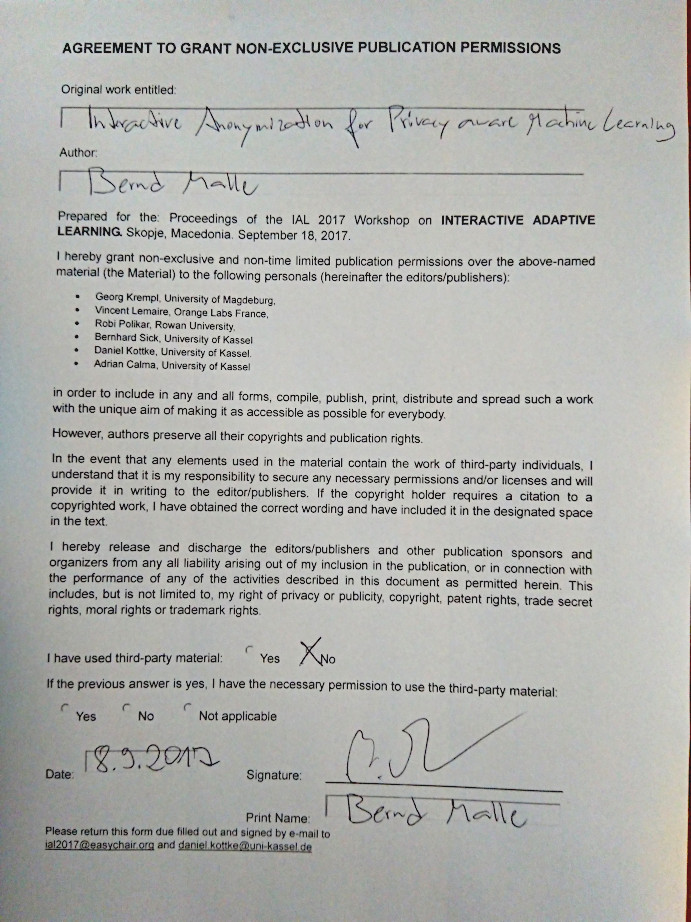 AGREEMENT TO GRANT NON-EXCLUSIVE PUBLICATION PERMISSIONS
Original work entitled:
Interactive Anonymization for Privacy aware Machine Learning
Author:
Bernd Malle
Prepared for the: Proceedings of the IAL 2017 Workshop on INTERACTIVE ADAPTIVE
LEARNING. Skopje, Macedonia. September 18, 2017.
I hereby grant non-exclusive and non-time limited publication permissions over the above-named
material (the Material) to the following personals (hereinafter the editors/publishers):
• Georg Krempl, University of Magdeburg,
• Vincent Lemaire, Orange Labs France,
• Robi Polikar, Rowan University,
• Bernhard Sick, University of Kassel
• Daniel Kottke, University of Kassel.
• Adrian Calma, University of Kassel
in order to include in any and all forms, compile, publish, print, distribute and spread such a work
with the unique aim of making it as accessible as possible for everybody.
However, authors preserve all their copyrights and publication rights.
In the event that any elements used in the material contain the work of third-party individuals, I
understand that it is my responsibility to secure any necessary permissions and/or licenses and will
provide it in writing to the editor/publishers. If the copyright holder requires a citation to a
copyrighted work, I have obtained the correct wording and have included it in the designated space
in the text.
I hereby release and discharge the editors/publishers and other publication sponsors and
organizers from any all liability arising out of my inclusion in the publication, or in connection with
the performance of any of the activities described in this document as permitted herein. This
includes, but is not limited to, my right of privacy or publicity, copyright, patent rights, trade secret
rights, moral rights or trademark rights.
I have used third-party material: Yes No
If the previous answer is yes, I have the necessary permission to use the third-party material:
Yes No Not applicable
Date: 18.9.2017 Signature:
Print Name: Bernd Malle
Please return this form due filled out and signed by e-mail to
ial2017@easychair.org and daniel.kottke@uni-kassel.de